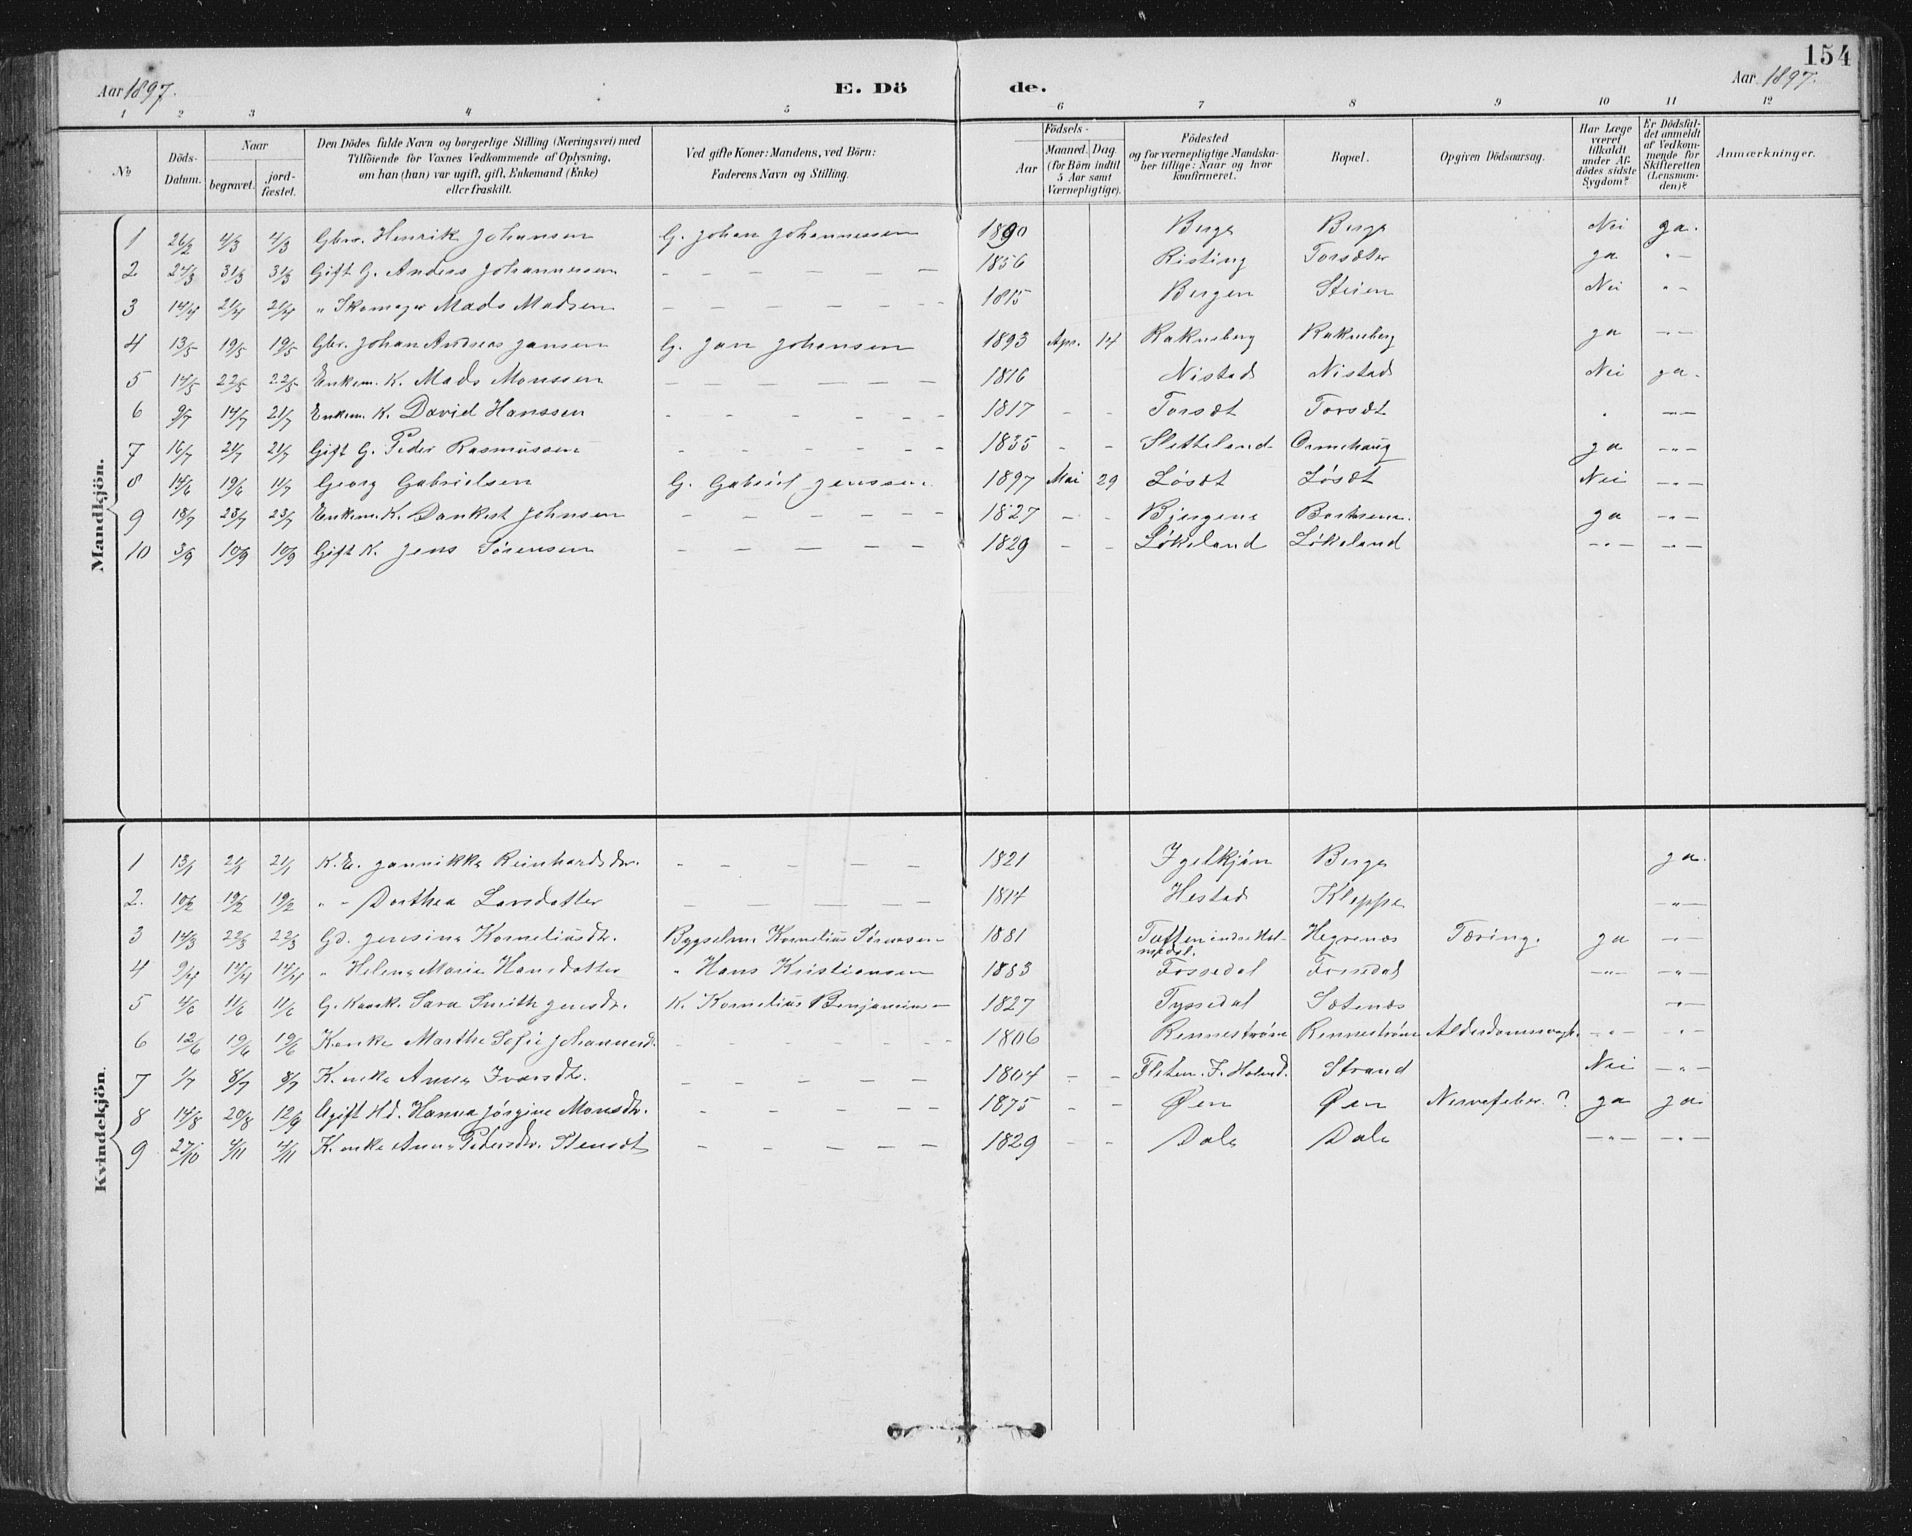 154
Aar 1897. E. Dö de. Aar 1897.
1 2 3 4 5 6 7 8 9 10 11 12
№ Döds-Datum. Naar begravet. jord-fæstet. Den Dödes fulde Navn og borgerlige Stilling (Næringsvei) med Tilföiende for Voxnes Vedkommende af Oplysning, om han (hun) var ugift, gift, Enkemand (Enke) eller fraskilt. Ved gifte Koner: Mandens, ved Börn: Faderens Navn og Stilling. Födsels- Aar Maaned. Dag. (for Börn indtil 5 Aar samt Værnepligtige). Födested og for værnepligtige Mandskaber tillige: Naar og hvor konfirmeret. Bopæl. Opgiven Dödsaarsag. Har Læge været tilkaldt under Afdödes sidste Sygdom? Er Dödsfaldet anmeldt af Vedkommende for Skifteretten (Lensmanden)? Anmærkninger.
Mandkjön.
1 26/2 4/3 4/3 Gbr. Henrik Johansen G. Johan Johannessen 1890 Berge Berge Nei ja.
2 24/3 31/3 31/3 Gift G. Anders Johannessen – – – – – – 1856 Risting Torsæter ja „ –
3 14/4 21/4 21/4 „ Skomager Mads Madsen – – – – – – 1815 Bergen Steien Nei „ –
4 13/5 19/5 19/5 Gbr. Johan Andreas Jansen G. Jan Johansen 1893 Apr. 14 Rakneberg Rakneberg ja – „ –
5 14/5 22/5 22/5 Enkem. K. Mads Monssen – – – – – – 1816 Nistad Nistad Nei ja.
6 9/7 14/7 21/7 Enkem. K. David Hanssen – – – – – – 1817 – – Torsæt Torsæt – „ –
7 16/7 21/7 21/7 Gift G. Peder Rasmussen – – – – – – 1835 – – Sletteland Ormehaug ja – „ –
8 14/6 19/6 11/7 Georg Gabrielsen G. Gabriel Jenssen 1897 Mai 29 Løsæt Løsæt Nei – „ –
9 18/7 23/7 23/7 Enkem. K. Dankert Johnsen – – – – – – 1827 – – Bjergene ja – „ –
10 3/9 10/9 10/9 Gift K. Jens Sørensen – – – – – – 1829 – – Løkeland Løkeland – „ – – „ –
Kvindekjön.
1 13/1 21/1 21/1 K. E. Jannikke Reinhardsdr. – – – – – – 1821 Igelkjøn Berge ja.
2. 10/2 19/2 19/2 „ – Dorthea Larsdatter – – – – – – 1814 Hestad Kleppe – „ –
3 14/3 22/3 22/3 Gd. Jensine Korneliusdr. Bygselm. Kornelius Sørensen 1881 Toften indre Holmedal. Hegrenæs Tæring. ja – „ –
4 9/4 14/4 14/4 „ Helene Marie Hansdatter „ Hans Kristiansen 1883 Fossedal Fossedal – „ – – „ –
5 4/6 11/6 11/6 G. Kaark. Sara Smith Jensdr. K. Kornelius Benjaminsen 1827 Tyssedal Sætenæs – „ –
6 12/6 19/6 19/6 Kenke Marthe Sofie Johannesd. – – – – – – 1806 Rennestrøm Rennestrøm – „ – – „ –
7 1/7 8/7 8/7 K. enke Anna Ivarsdtr. – – – – – – 1804 – – Fleten. I. Holmd. Strand Nei – „ –
8 14/8 20/8 12/9 Ugift Hd. Hanna Jørgine Monsdr. – – – – – – 1875 – – Øen Øen Nervefeber. ? ja ja
9 27/10 4/11 4/11 K. enke Anna Pedersdr. Stensæt – – – – – – 1829 – – Dale Dale – „ – – „ –